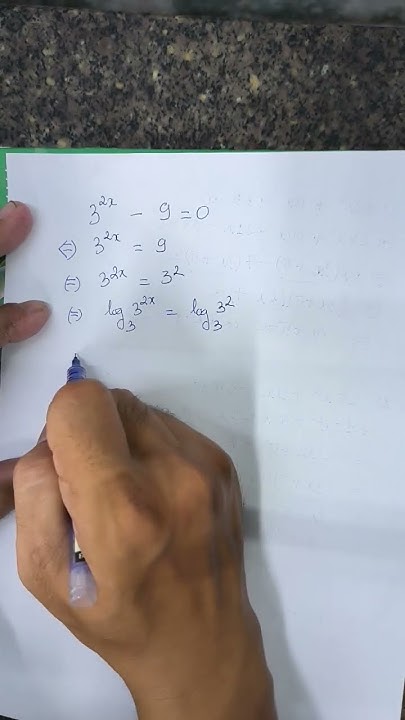 3^{2x} - 9 = 0
⇔ 3^{2x} = 9
(=) 3^{2x} = 3^2
(=) log_3 3^{2x} = log_3 3^2